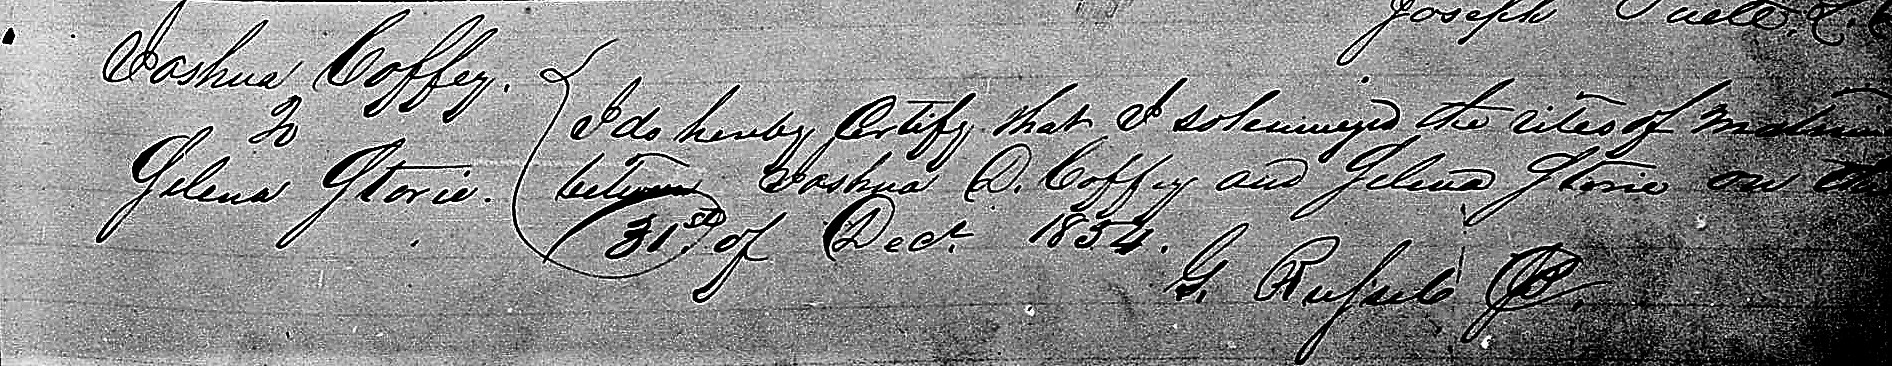 Joseph
Joshua Coffey.
To
Gelena Storie.
I do hereby Certify that I solemnized the rites of
between Joshua D. Coffey and Gelena Storie on the
31st of Dect. 1854.
G. Russell JP.